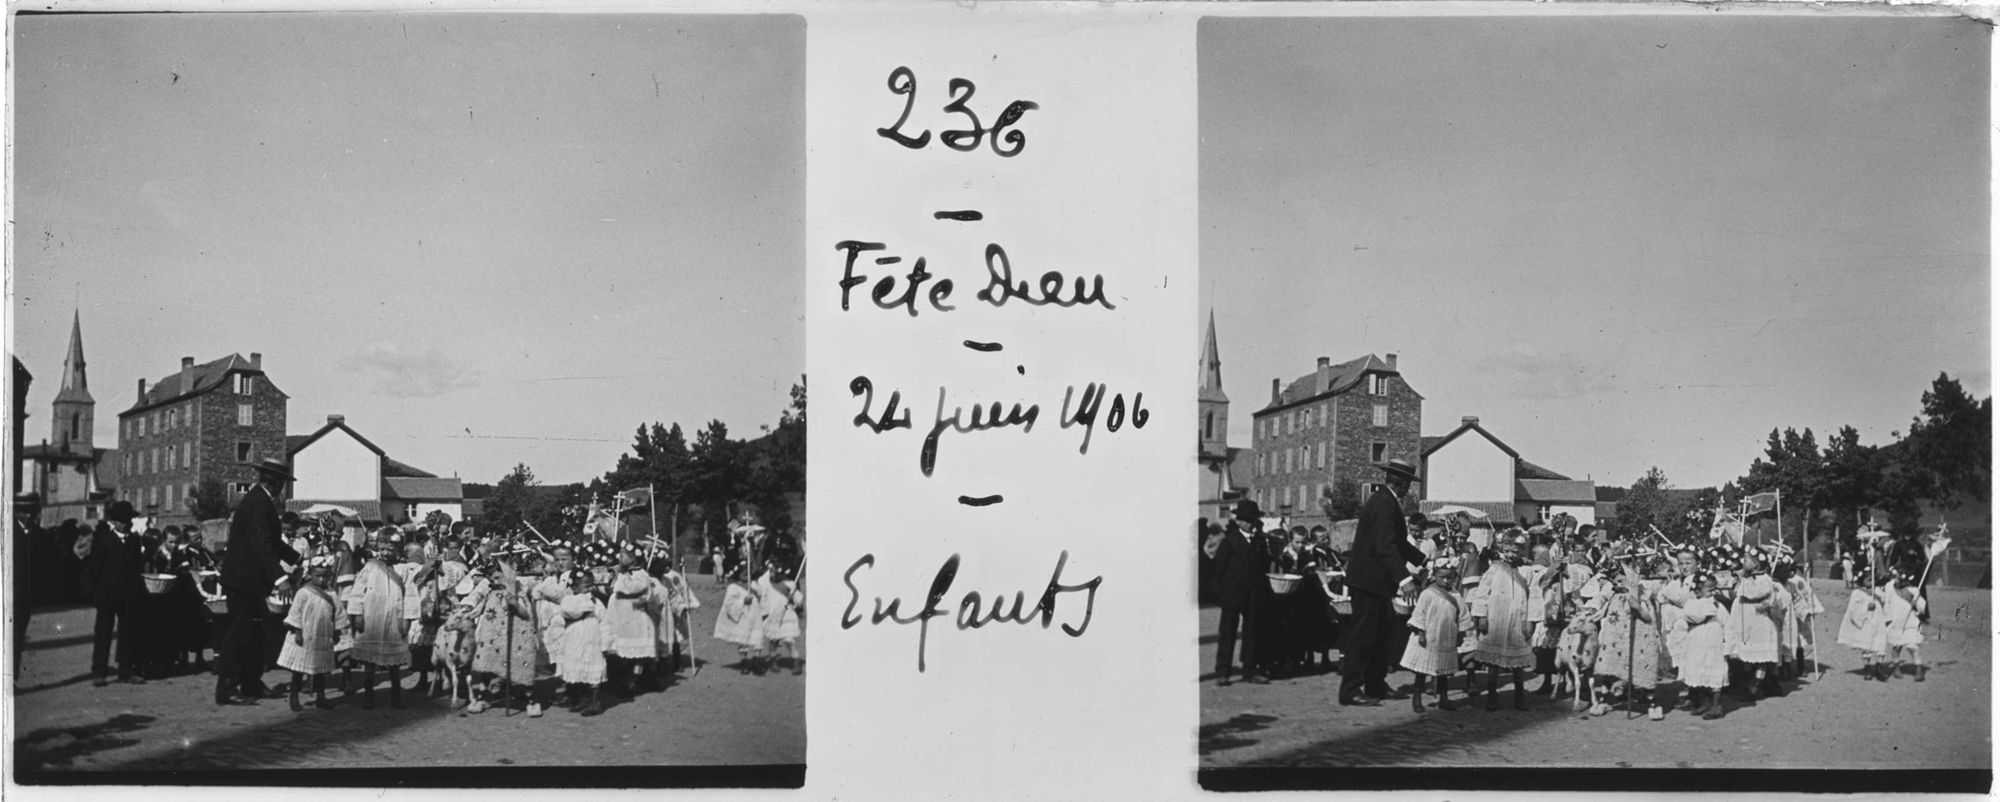 236
Fête Dieu
24 juin 1906
Enfants